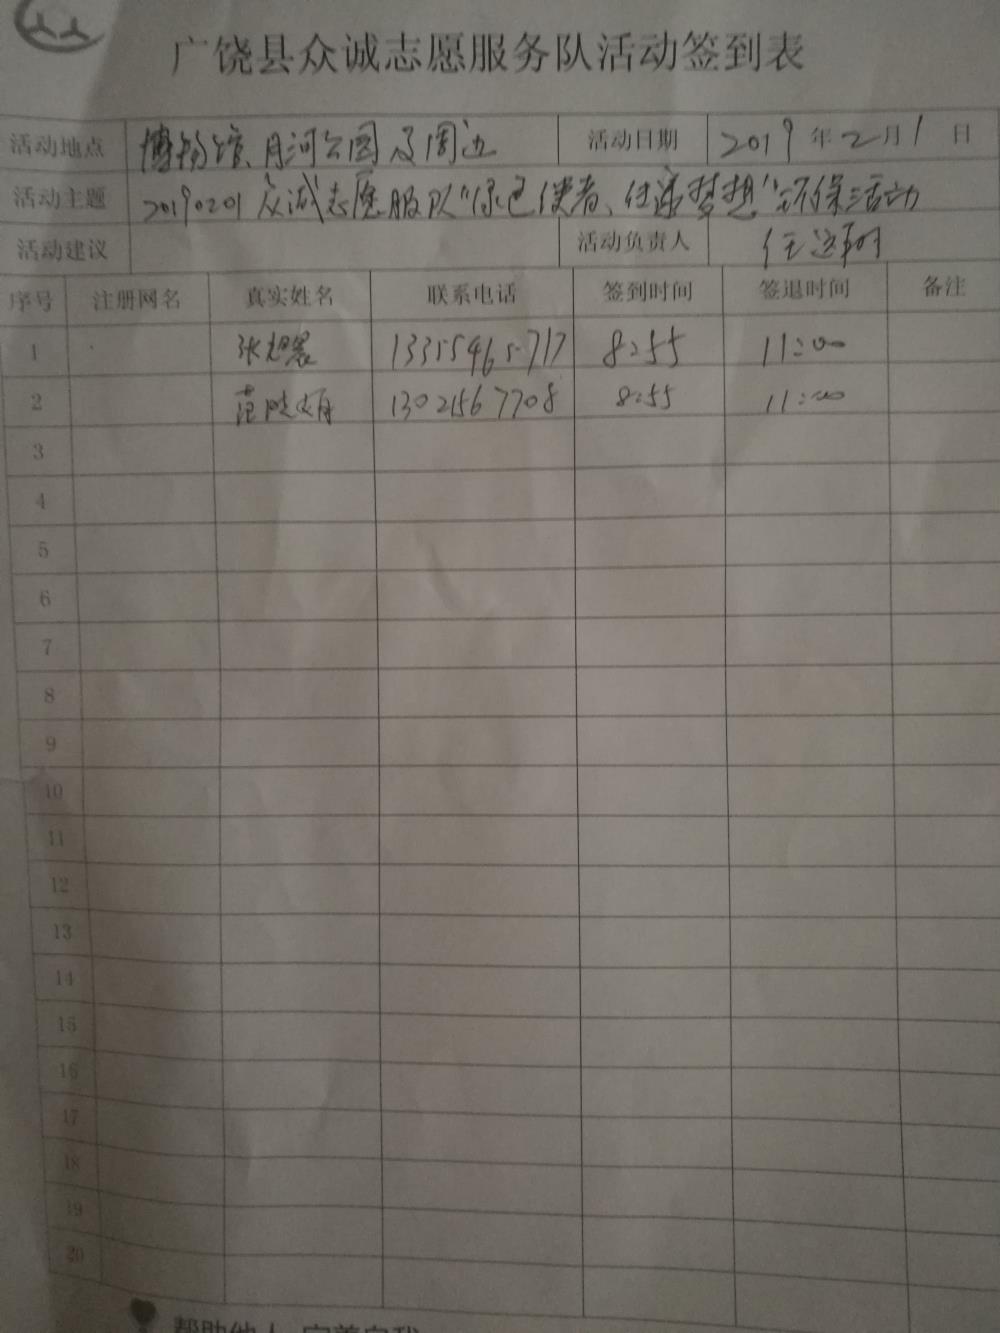 广饶县众诚志愿服务队活动签到表
活动地点 博物馆、月河公园及周边 活动日期 2019年2月1日
活动主题 20190201众诚志愿服队“绿色使者、传递梦想”环保活动
活动建议 活动负责人 任
序号 注册网名 真实姓名 联系电话 签到时间 签退时间 备注
1 张旭 13355465717 8:55 11:00
2 范晓 13021567708 8:55 11:00
3
4
5
6
7
8
9
10
11
12
13
14
15
16
17
18
19
20
帮助他人 完善自我